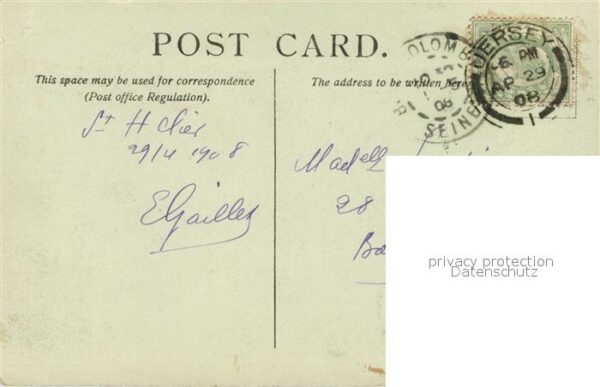 POST CARD.
This space may be used for correspondence
(Post office Regulation).
The address to be written here
COLOMB
SEINE
08
JERSEY
6 PM
AP 29
08
1
St Helier
29/4 1908
28
privacy protection
Datenschutz